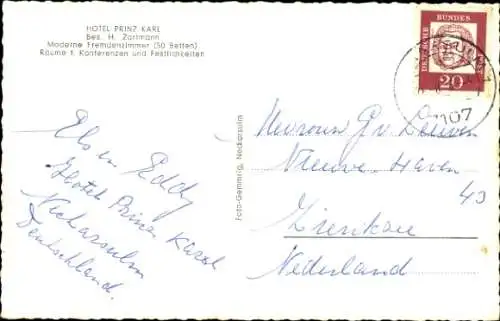 HOTEL PRINZ KARL
Bes. H. Zartmann
Moderne Fremdenzimmer (50 Betten)
Räume f. Konferenzen und Festlichkeiten
DEUTSCHE BUNDESPOST
20
7107
Els en Eddy
Hotel Prinz Karel
Neckarsulm
Deutschland.
Foto-Gemmrig, Neckarsulm
Mevrouw Gv Leeuwen
Nieuwe-Haven
43
Zierikzee
Nederland